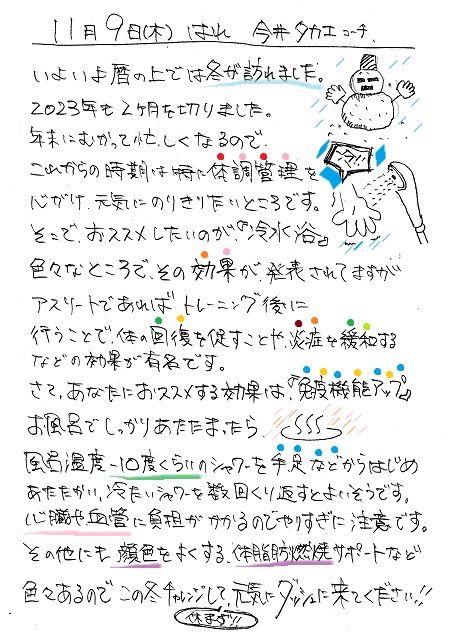 11月9日(木) はれ 今井タカエコーチ
いよいよ暦の上では冬が訪れました。
2023年も2ヶ月を切りました。
年末にむかって忙しくなるので、
これからの時期は特に体調管理を
心がけ、元気にのりきりたいところです。
そこで、おススメしたいのが『冷水浴』
色々なところで、その効果が、発表されてますが
アスリートであればトレーニング後に
行うことで、体の回復を促すことや、炎症を緩和する
などの効果が有名です。
さて、あなたにおススメする効果は、『免疫機能アップ』
お風呂でしっかりあたたまったら
風呂温度-10度くらいのシャワーを手足などからはじめ
あたたかい、冷たいシャワーを数回くり返すとよいそうです。
心臓や血管に負担がかかるのでやりすぎに注意です。
その他にも顔色をよくする、体脂肪燃焼サポートなど
色々あるので この冬チャレンジして、元気にダッシュに来てください!!
休まず!!